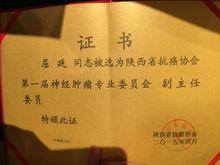 证书
屈延 同志被选为陕西省抗癌协会
第一届神经肿瘤专业委员会 副主任
委员
特颁此证
陕西省抗癌协会
二〇一五年四月